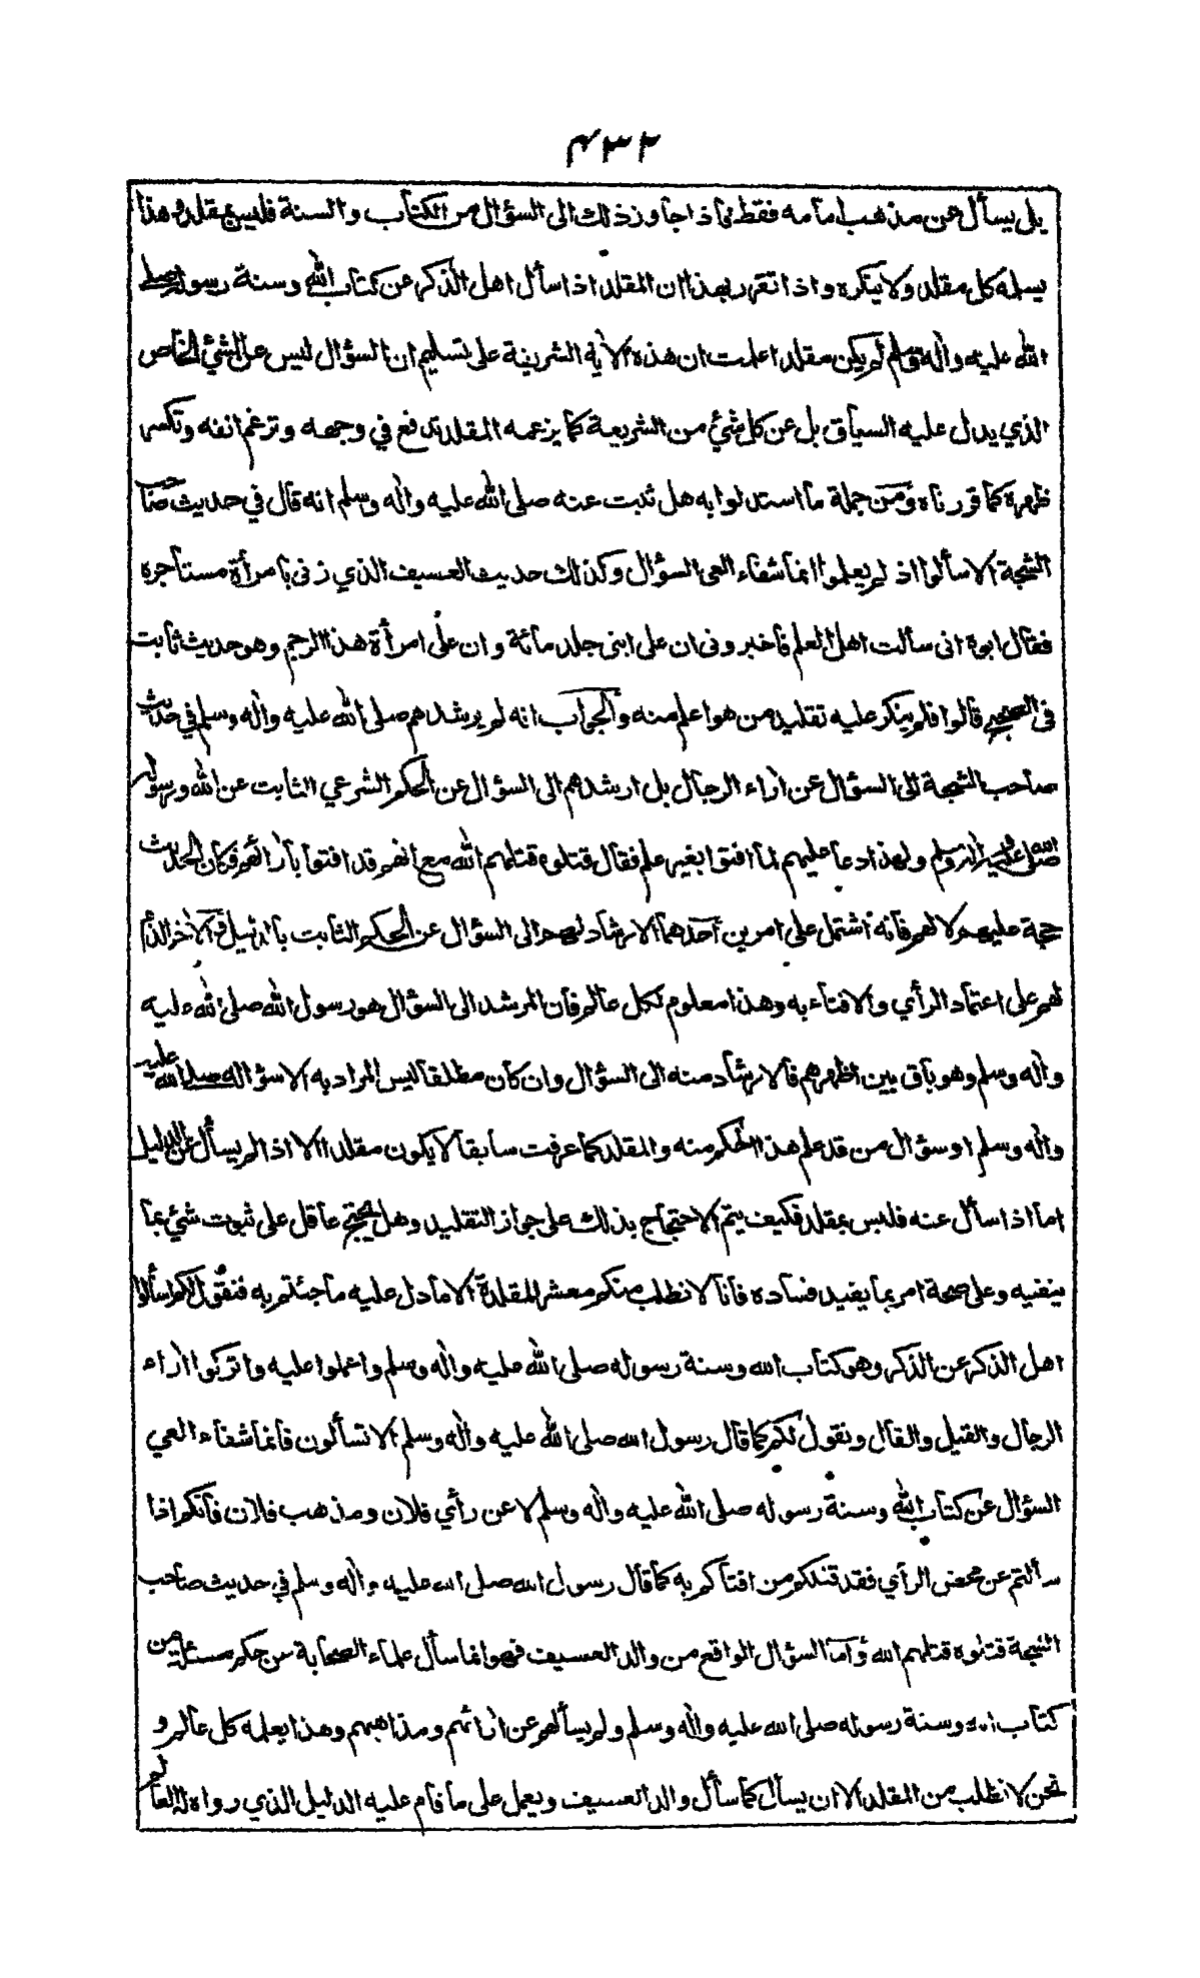 ٤٣٢
بل يسأل عن مذهب امامه فقط فاذا جاوز ذلك الى السؤال من الكتاب والسنة فليس بمقلد وهذا
يسلمه كل مقلد ولا ينكره واذا تقرر بهذا ان المقلد اذا سأل اهل الذكر عن كتاب الله وسنة رسوله صلى
الله عليه واله وسلم لم يكن مقلدا علمت ان هذه الاية الشريفة على تسليم ان السؤال ليس عن الشئ الخاص
الذي يدل عليه السياق بل عن كل شئ من الشريعة كما يزعمه المقلد تدفع في وجهه وترغم انفه وتكسر
ظهره كما قررناه ومن جملة ما استدلوا به هل ثبت عنه صلى الله عليه واله وسلم انه قال في حديث صاحب
الشجة الا سألوا اذ لم يعلموا انما شفاء العي السؤال وكذلك حديث العسيف الذي زنى بامرأة مستأجره
فقال ابوه انى سألت اهل العلم فاخبرونى ان على ابنى جلد مائة وان على امرأة هذا الرجم وهو حديث ثابت
فى الصحيح قالوا فلم ينكر عليه تقليد من هو اعلم منه والجواب انه لم يرشدهم صلى الله عليه واله وسلم في حديث
صاحب الشجة الى السؤال عن اراء الرجال بل ارشدهم الى السؤال عن الحكم الشرعي الثابت عن الله ورسوله
صلى الله عليه واله وسلم ولهذا دعا عليهم لما افتوا بغير علم فقال قتلوه قتلهم الله مع انهم قد افتوا بارائهم فكان الحديث
حجة عليهم لا لهم فانه اشتمل على امرين احدهما الارشاد لهم الى السؤال عن الحكم الثابت بالدليل والاخر الذم
لهم على اعتماد الرأي والافتاء به وهذا معلوم لكل عالم فان المرشد الى السؤال هو رسول الله صلى الله عليه
واله وسلم وهو باق بين اظهرهم فالارشاد منه الى السؤال وان كان مطلقا ليس المراد به الا سؤاله صلى الله عليه
واله وسلم او سؤال من قد علم هذا الحكم منه والمقلد كما عرفت سابقا لا يكون مقلدا الا اذا لم يسأل عن الدليل
اما اذا سأل عنه فليس بمقلد فكيف يتم الاحتجاج بذلك على جواز التقليد وهل يحتج عاقل على ثبوت شئ بما
ينفيه وعلى صحة امر بما يفيد فساده فانا لا نطلب منكم معشر المقلدة الا ما دل عليه ما جئتم به فنقول لكم اسألوا
اهل الذكر عن الذكر وهو كتاب الله وسنة رسوله صلى الله عليه واله وسلم واعملوا عليه واتركوا اراء
الرجال والقيل والقال ونقول لكم كما قال رسول الله صلى الله عليه واله وسلم الا تسألون فانما شفاء العي
السؤال عن كتاب الله وسنة رسوله صلى الله عليه واله وسلم لا عن رأي فلان ومذهب فلان فانكم اذا
سألتم عن محض الرأي فقد قتلكم من افتاكم به كما قال رسول الله صلى الله عليه واله وسلم في حديث صاحب
الشجة قتلوه قتلهم الله واما السؤال الواقع من والد العسيف فهو انما سأل علماء الصحابة عن حكم مسئلة من
كتاب الله وسنة رسوله صلى الله عليه واله وسلم ولم يسألهم عن ارائهم ومذاهبهم وهذا يعلمه كل عالم و
نحن لا نطلب من المقلد الا ان يسأل كما سأل والد العسيف ويعمل على ما قام عليه الدليل الذي رواه له العالم